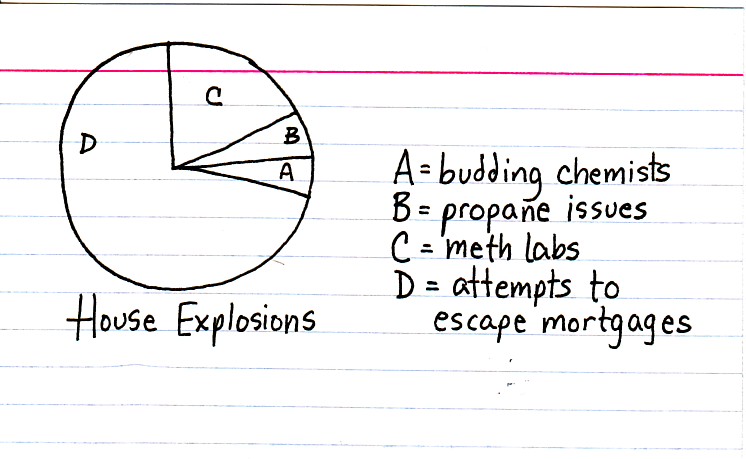 C
B
D
A
A = budding chemists
B = propane issues
C = meth labs
D = attempts to
escape mortgages
House Explosions